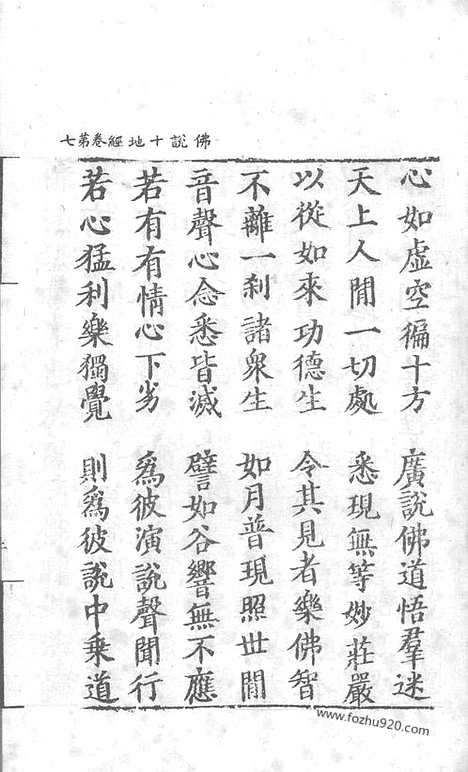 佛說十地經卷第七
心如虛空徧十方　廣說佛道悟羣迷
天上人間一切處　悉現無等妙莊嚴
以從如來功德生　令其見者樂佛智
不離一刹諸衆生　如月普現照世間
音聲心念悉皆滅　譬如谷響無不應
若有有情心下劣　爲彼演說聲聞行
若心猛利樂獨覺　則爲彼說中乘道
www.fozhu920.com